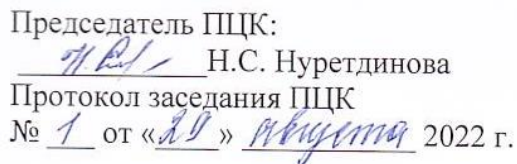 Председатель ПЦК:
Н.С. Нуретдинова
Протокол заседания ПЦК
№ 1 от «29» августа 2022 г.